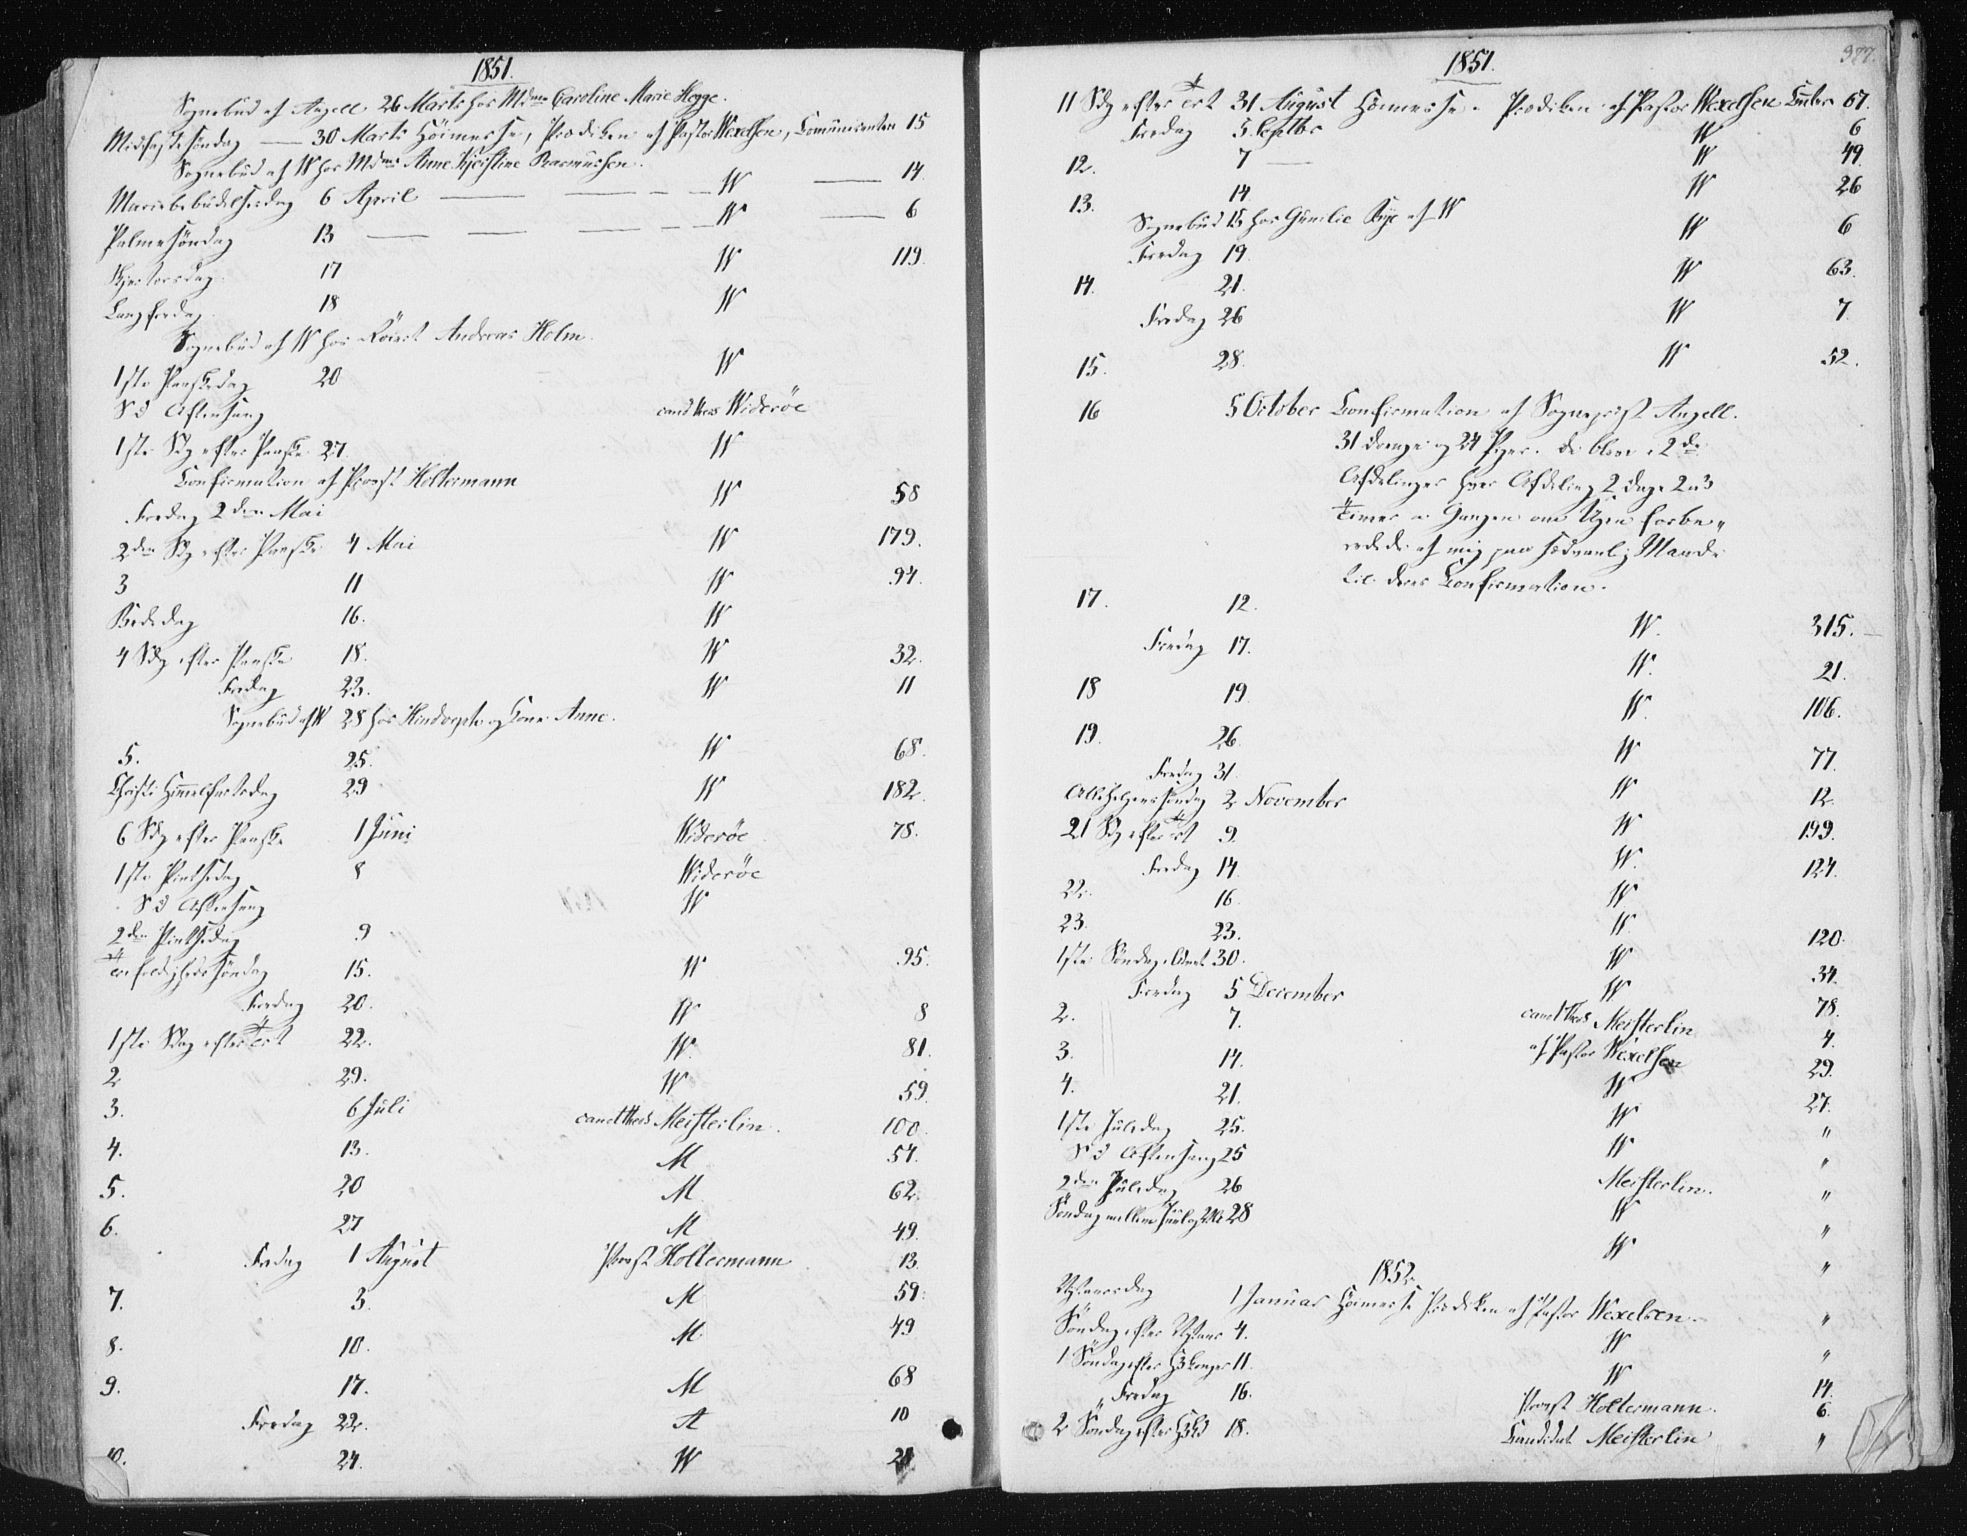 1851.
Sognebud af Angell 26 Marts hos Mdme Caroline Marie Hegge.
Midfastesöndag — 30 Marts Höimesse, Prædiken af Pastor Wexelsen, Communicanter 15
Sognebud af W hos Mdme Anne Kjerstine Rasmussen.
Mariæbebudelsesdag 6 April — W — 14.
Palmesöndag 13 — W — 6
Skjertorsdag 17 W 119.
Langfredag 18 W
Sognebud af W hos Andreas Holm.
1ste Paaskedag 20 W
S d Aftensang cand theol Wideröe
1ste Sdg efter Paaske 27. W
Confirmation af Provst Holtermann
Fredag 2den Mai W 58
2den Sdg efter Paaske 4 Mai W 179.
3 11 W 94.
Bededag 16. W
4 Sdg efter Paaske 18. W 32.
Fredag 23. W 11
Sognebud af W 28 hos Kone Anne.
5. 25. W 68.
Christi Himmelfartsdag 29 W 182.
6 Sdg efter Paaske 1 Juni Wideröe 78.
1ste Pintsedag 8 Wideröe
S d Aftensang W
2den Pintsedag 9
Trefoldighedssöndag 15. W 95.
Fredag 20. W 8
1ste Sdag efter Tret 22. W. 81.
2 29. W 59.
3. 6 Juli cand theol Meisterlin. 100.
4. 13. M 54.
5. 20 M 62.
6. 27 M 49.
Fredag 1 August Provst Holtermann 13.
7. 3. M 59.
8. 10. M 49
9. 17. M 68
Fredag 22. A 10
10. 24. W
377.
1851.
11 Sdg efter Tret 31 August Höimesse. Prædiken af Pastor Wexelsen 67.
Fredag 5 Septbr W 6
12. 7 — W 49.
13. 14. W 26
Sognebud 15 hos Gunilie Rye af W
Fredag 19. W 6
14. 21. W 63.
Fredag 26 W 7
15. 28. W 52.
16 5 October Confirmation af Sogneprest Angell.
31 Drenge og 24 Piger. De bleve i 2de
Afdelinger hver Afdeling 2 Dage 2 a 3
Timer a Gangen om Ugen forbe„
redede af mig paa sædvanlig Maade
til deres Confirmation.
17. 12. W. 315.
Fredag 17. W. 21.
18 19. W. 106.
19. 26. W 77.
Fredag 31. W 12.
Allehelgenssöndag 2 November W 199.
21 Sdg efter Tret 9. W. 124.
Fredag 14. W
22. 16. W
23. 23. W 120.
1ste Söndag i Advent 30. W 34.
Fredag 5 December cand theol Meisterlin 78.
2. 7. af Pastor Wexelsen 4.
3. 14. W 29.
4. 21. W 27.
1ste Juledag 25. W „
S d Aftensang 25 Meisterlin. „
2den Juledag 26 W „
Söndag mellem Juul og Nytaar 28 W „
1852.
Nytaarsdag 1 Januar Höimesse Prædiken af Pastor Wexelsen. „
Söndag efter Nytaar 4. W „
1 Söndag efter H3konger 11. W „
Fredag 16. Provst Holtermann. 14.
2 Söndag efter 18. Candidat Meisterlin 6.
„